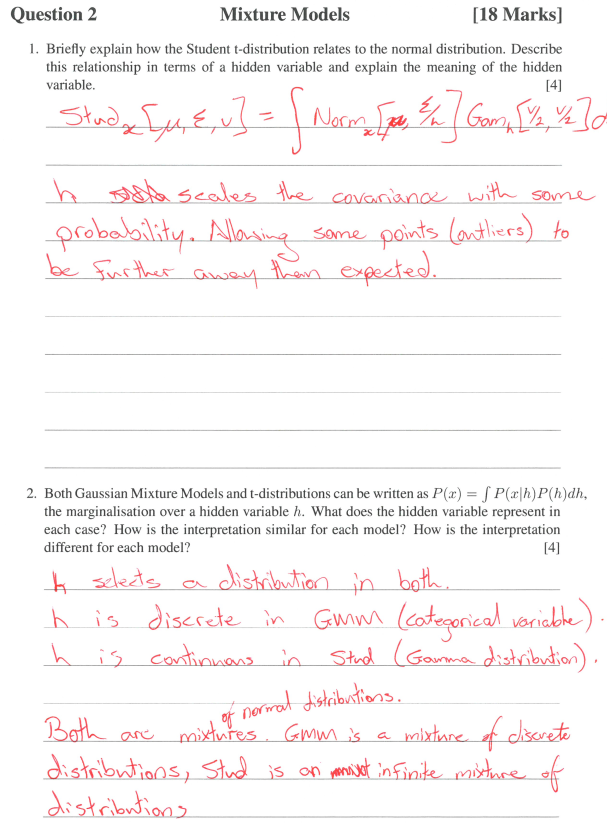 Question 2 Mixture Models [18 Marks]
1. Briefly explain how the Student t-distribution relates to the normal distribution. Describe
this relationship in terms of a hidden variable and explain the meaning of the hidden
variable. [4]
Stud_x[μ, Σ, ν] = ∫ Norm_x[μ, Σ/h] Gam_h[ν/2, ν/2]d
h scales the covariance with some
probability. Allowing some points (outliers) to
be further away than expected.
2. Both Gaussian Mixture Models and t-distributions can be written as P(x) = ∫ P(x|h)P(h)dh,
the marginalisation over a hidden variable h. What does the hidden variable represent in
each case? How is the interpretation similar for each model? How is the interpretation
different for each model? [4]
h selects a distribution in both.
h is discrete in GMM (categorical variable).
h is continuous in Stud (Gamma distribution).
of normal distributions.
Both are mixtures. GMM is a mixture of discrete
distributions, Stud is an infinite mixture of
distributions